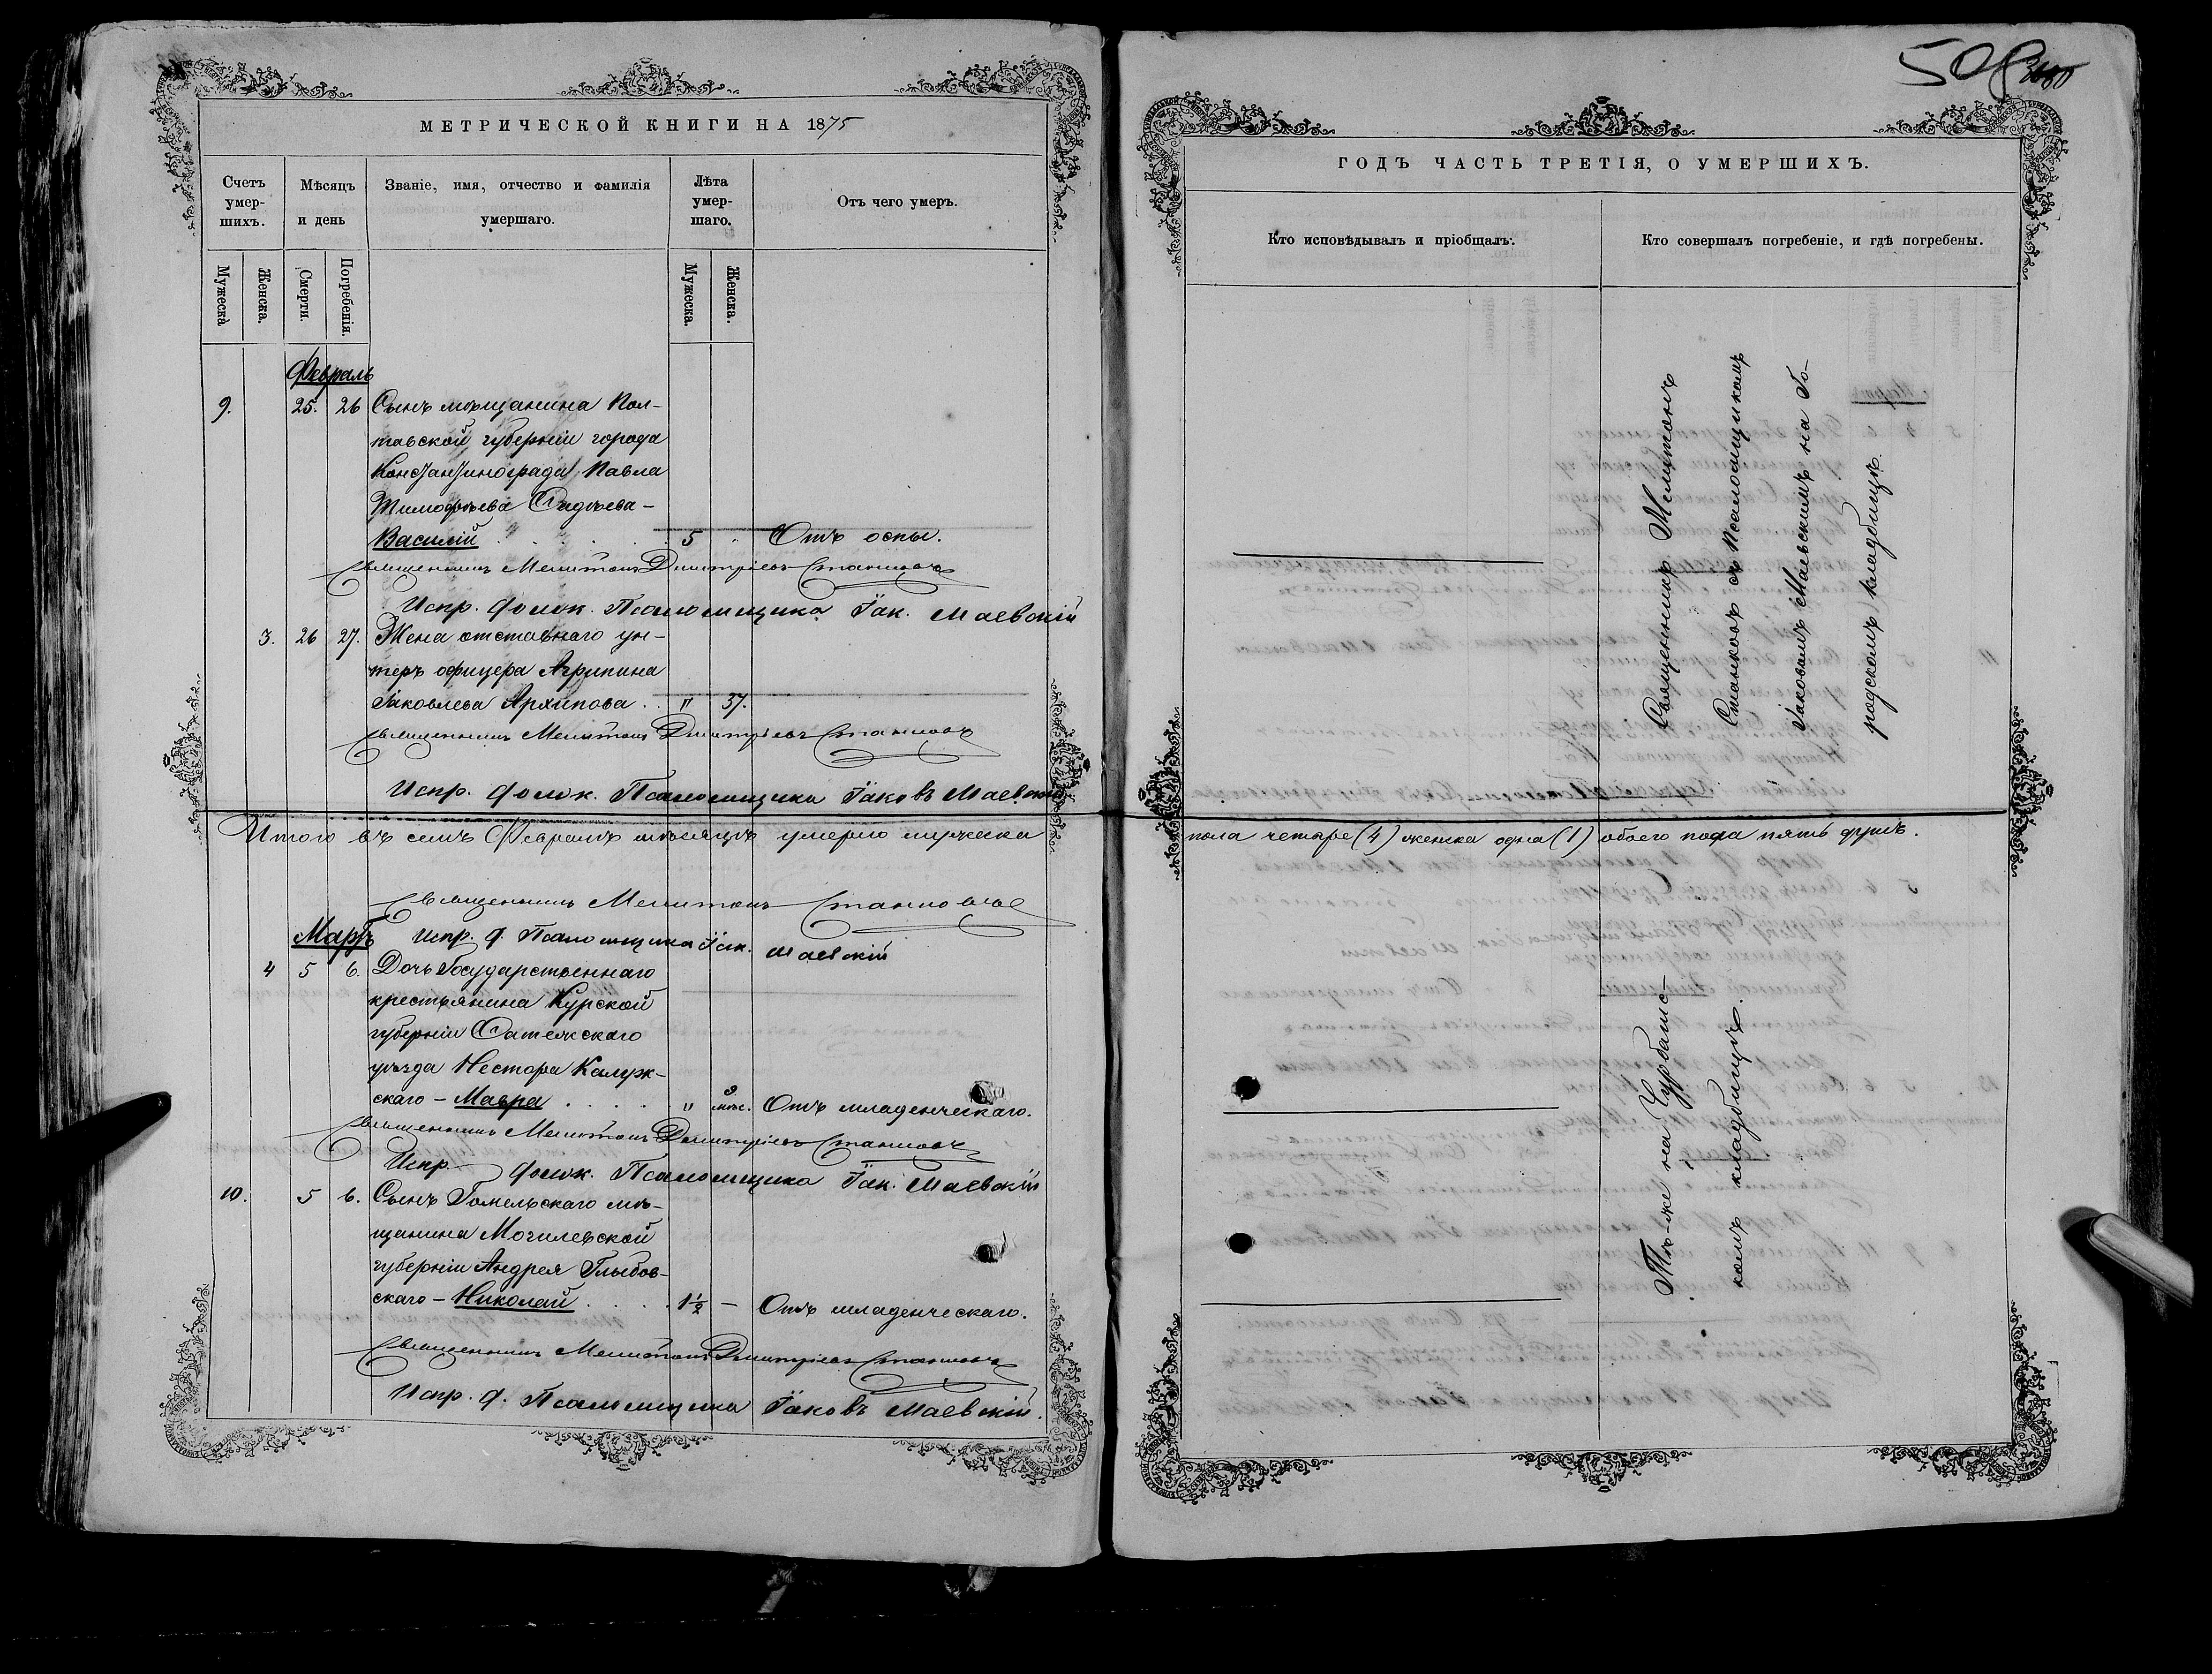 МЕТРИЧЕСКОЙ КНИГИ НА 1875
Счетъ умер-шихъ.
Мѣсяцъ и день
Званіе, имя, отчество и фамилія умершаго.
Лѣта умер-шаго.
Отъ чего умеръ.
Мужеска
Женска.
Смерти.
Погребенія.
Мужеска.
Женска.
Февраль
9. 25. 26 Сынъ мѣщанина Пол-
тавской губерніи города
Константинограда Павла
Тимофѣева
Василій 5 Отъ оспы.
Священникъ Мелитонъ Димитріевъ Станковъ
Испр. долж. Псаломщика Іак. Маевскій
3. 26 27. Жена отставнаго ун-
теръ офицера Агрипина
Іаковлева Архипова . . " 37.
Священникъ Мелитонъ Димитріевъ Станковъ
Испр. долж. Псаломщика Іаковъ Маевскій
Итого въ семъ Февралѣ мѣсяцѣ умерло мужеска
Священникъ Мелитонъ Станковъ
Мартъ Испр. д. Псаломщика Іак. Маевскій
4 5 6. Дочь Государственнаго
крестьянина Курской
губерніи
уѣзда Нестора Калуж-
скаго - Мавра . . . . " 9 мѣс. Отъ младенческаго.
Священникъ Мелитонъ Димитріевъ Станковъ
Испр. долж. Псаломщика Іак. Маевскій
10. 5 6. Сынъ Гомельскаго мѣ-
щанина Могилевской
губерніи Андрея Глыбов-
скаго - Николай . . . . 1½ — Отъ младенческаго.
Священникъ Мелитонъ Димитріевъ Станковъ
Испр. д. Псаломщика Іаковъ Маевскій.
508
ГОДЪ ЧАСТЬ ТРЕТІЯ, О УМЕРШИХЪ.
Кто исповѣдывалъ и пріобщалъ.
Кто совершалъ погребеніе, и гдѣ погребены.
Священникъ Мелитонъ
Станковъ съ Псаломщикомъ
Іаковомъ Маевскимъ на Го-
родскомъ кладбищѣ.
пола четыре (4) женска одна (1) обоего пола пять душъ.
Тѣ-же на Чурбашс-
комъ кладбищѣ.